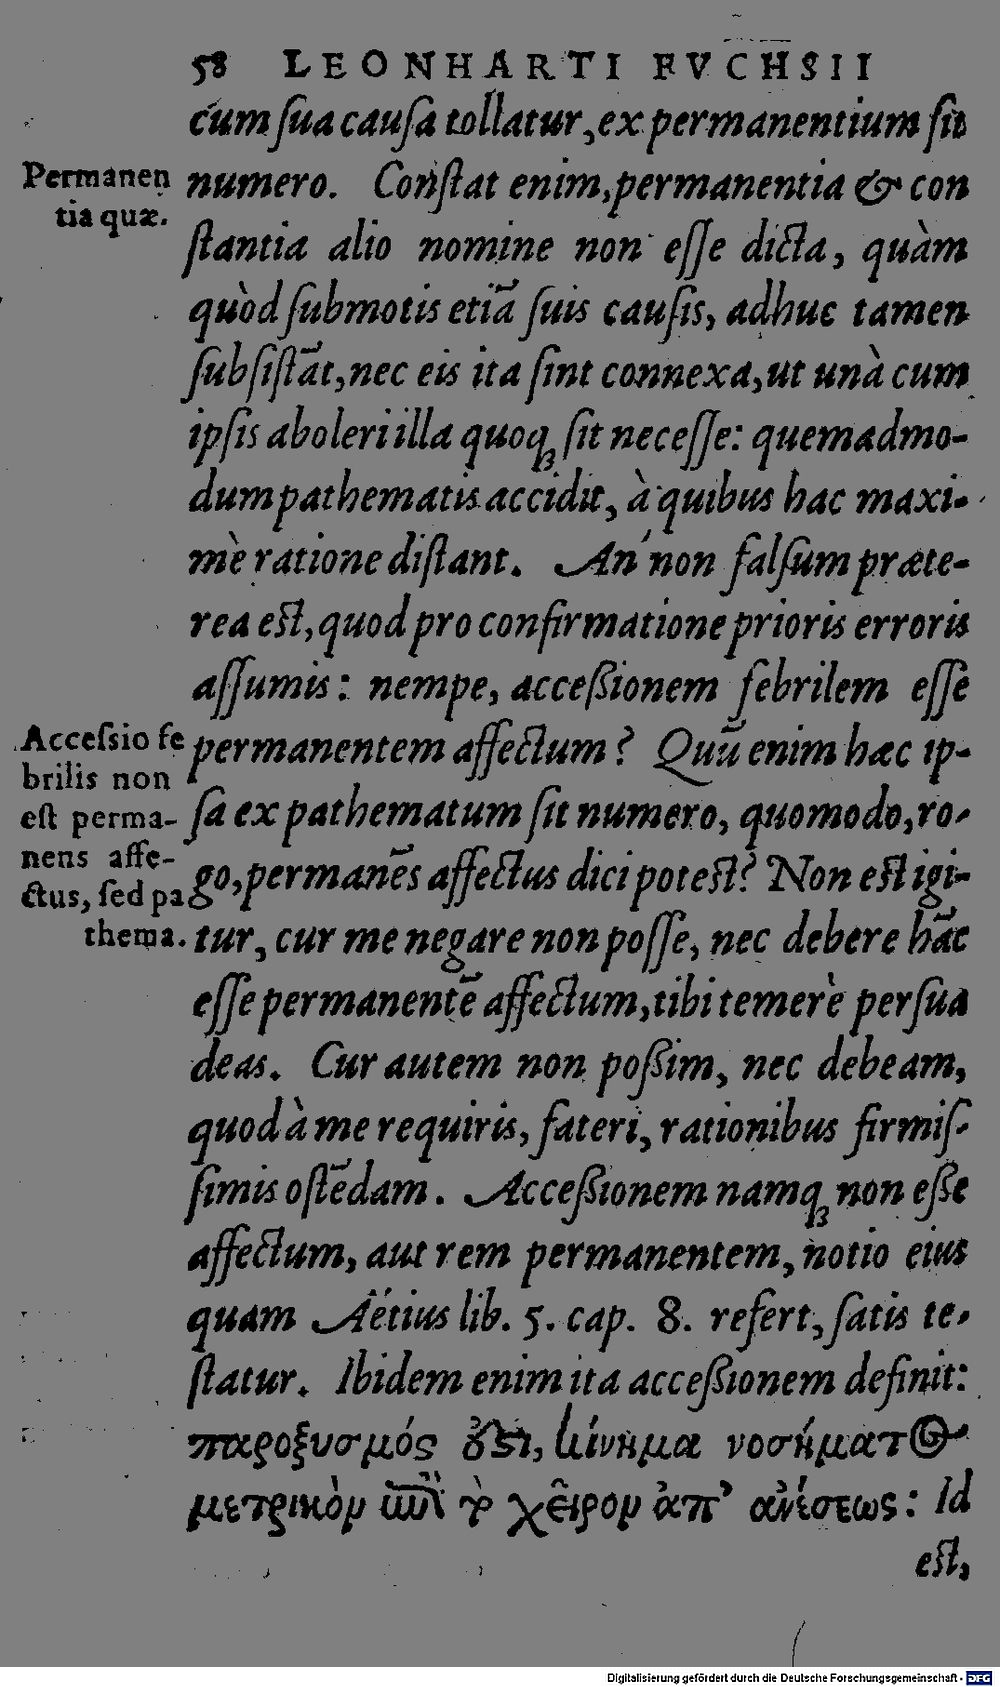 58 LEONHARTI FVCHSII
cum ſua cauſa tollatur, ex permanentium ſit
Permanen
tia quæ.
numero. Conſtat enim, permanentia & con
ſtantia alio nomine non eſſe dicta, quàm
quòd ſubmotis etiā ſuis cauſis, adhuc tamen
ſubſiſtāt, nec eis ita ſint connexa, ut unà cum
ipſis aboleri illa quoqꝫ ſit neceſſe: quemadmo-
dum pathematis accidit, à quibus hac maxi-
mè ratione diſtant. An non falſum præte-
rea eſt, quod pro confirmatione prioris erroris
aſſumis: nempe, acceßionem febrilem eſſe
Acceſsio fe
brilis non
eſt perma-
nens affe-
ctus, ſed pa
thema.
permanentem affectum? Quū enim hæc ip-
ſa ex pathematum ſit numero, quomodo, ro-
go, permanēs affectus dici poteſt? Non eſt igi-
tur, cur me negare non poſſe, nec debere hāc
eſſe permanentē affectum, tibi temerè perſua
deas. Cur autem non poßim, nec debeam,
quod à me requiris, fateri, rationibus firmiſ-
ſimis oſtēdam. Acceßionem namqꝫ non eſſe
affectum, aut rem permanentem, notio eius
quam Aëtius lib. 5. cap. 8. refert, ſatis te-
ſtatur. Ibidem enim ita acceßionem definit:
παροξυσμός ὅζι, κίνημα νοσήματ〇
μετρικὸν ἐπὶ τὸ χεῖρον ἀπ' ἀνέσεως: Id
eſt,
Digitalisierung gefördert durch die Deutsche Forschungsgemeinschaft - DFG